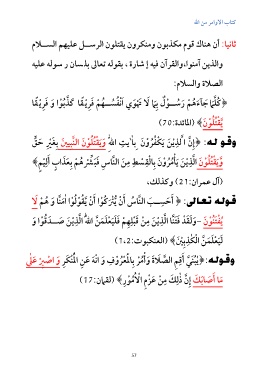 كتاب الأوامر من الله
ثانيا: أن هناك قوم مكذبون ومنكرون يقتلون الرســل عليهم الســلام
والذين آمنوا، والقرآن فيه إشارة ، بقوله تعالى بلسان رسوله عليه
الصلاة والسلام:
﴿كُلَّمَا جَآءَهُمْ رَسُــولٌ بِمَا لَا تَهْوَى أَنْفُسُــهُمْ فَرِيقًا كَذَّبُوْا وَ فَرِيقًا
يَّقْتُلُوْنَ﴾ (المائدة:70)
وقوله: ﴿إِنَّ الَّذِيْنَ يَكْفُرُوْنَ بِاٰيٰتِ اللّٰهِ وَيَقْتُلُوْنَ النَّبِيِّنَ بِغَيْرِ حَقٍّ
وَّيَقْتُلُوْنَ الَّذِيْنَ يَأْمُرُوْنَ بِالْقِسْطِ مِنَ النَّاسِ فَبَشِّرْهُمْ بِعَذَابٍ أَلِيْمٍ﴾
(آل عمران:21) وكذلك،
قوله تعالى: ﴿ أَحَسِــبَ النَّاسُ أَنْ يُّتْرَكُوْا أَنْ يَّقُوْلُوْا اٰمَنَّا وَ هُمْ لَا
يُفْتَنُوْنَ - وَلَقَدْ فَتَنَّا الَّذِيْنَ مِنْ قَبْلِهِمْ فَلَيَعْلَمَنَّ اللّٰهُ الَّذِيْنَ صَــدَقُوْا وَ
لَيَعْلَمَنَّ الْكٰذِبِيْنَ﴾ (العنكبوت:1،2)
وقوله: ﴿يٰبُنَيَّ أَقِمِ الصَّلَاةَ وَأْمُرْ بِالْمَعْرُوْفِ وَ انْهَ عَنِ الْمُنْكَرِ وَ اصْبِرْ عَلٰى
مَا أَصَابَكَ إِنَّ ذٰلِكَ مِنْ عَزْمِ الْاُمُوْرِ﴾ (لقمان:17)